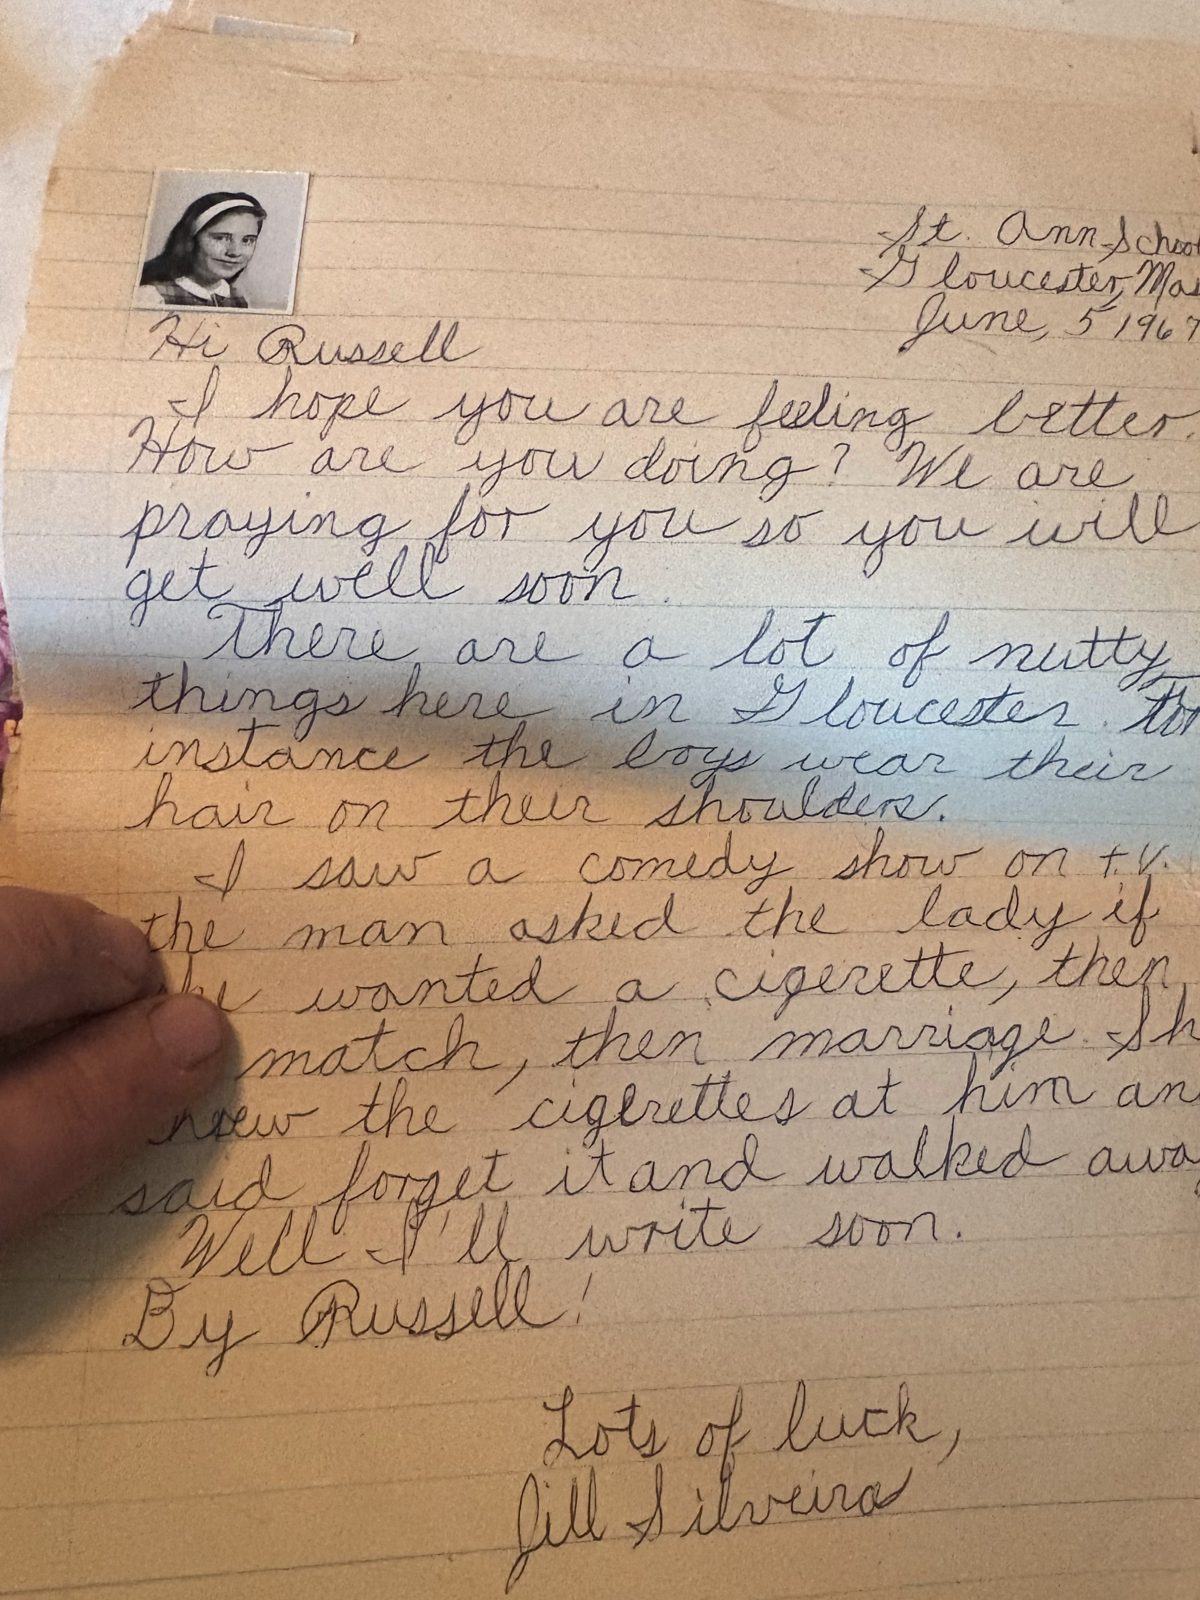 St. Ann School
Gloucester, Mas
June, 5 1967
Hi Russell
I hope you are feeling better.
How are you doing? We are
praying for you so you will
get well soon.
There are a lot of nutty
things here in Gloucester. For
instance the boys wear their
hair on their shoulders.
I saw a comedy show on t.v.
the man asked the lady if
she wanted a cigerette, then
match, then marriage. Sh
the cigerettes at him an
said forget it and walked awa
Well I'll write soon.
By Russell!
Lots of luck,
Jill Silveira